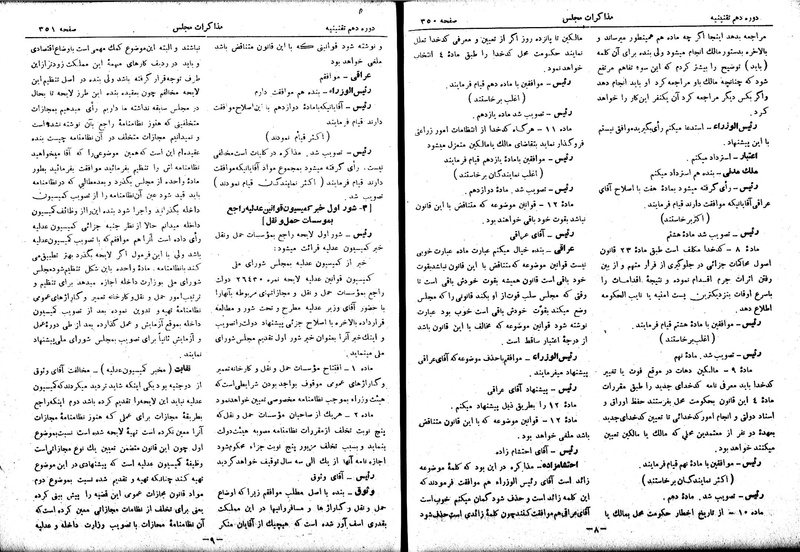 دوره دهم تقنینیه
مذاکرات مجلس
صفحه ۳۵۰
مراجعه بدهد اینجا اگر چه ماده هم همینطور میرساند و
بالاخره بدستور مالك انجام میشود ولی بنده برای آن کلمه
(باید) توضیح را بیشتر کردم که این سوء تفاهم مرتفع
شود که چنانچه مالك باو مراجعه کرد او باید انجام دهد
واگر بکس دیگر مراجعه کرد آن یکنفر این کار را خواهد
کرد.
رئیس‌الوزراء - استدعا میکنم رأی بگیرید موافق نیستم
با این پیشنهاد.
اعتبار - استرداد میکنم.
ملك مدنی - بنده هم استرداد میکنم
رئیس - رأی گرفته میشود بمادۀ هفت با اصلاح آقای
عراقی آقایانیکه موافقت دارند قیام فرمایند.
(اکثر برخاستند)
رئیس - تصویب شد مادۀ هشتم
مادۀ ۸ - کدخدا مکلف است طبق مادۀ ۲۳ قانون
اصول محاکمات جزائی در جلوگیری از فرار متهم و از بین
رفتن اثرات جرم اقدام نموده و نتیجۀ اقدامات را
باسرع اوقات بنزدیکترین پست امنیه یا نایب الحکومه
اطلاع دهد.
رئیس - موافقین با مادۀ هشتم قیام فرمایند.
(اغلب برخاستند)
رئیس - تصویب شد. مادۀ نهم
مادۀ ۹ - مالکین دهات در موقع فوت یا تغییر
کدخدا باید معرفی نامه کدخدای جدید را طبق مقررات
مادۀ ٤ این قانون بحکومت محل بفرستند حفظ اوراق و
اسناد دولتی و انجام امور کدخدائی تا تعیین کدخدای جدید
بعهدۀ دو نفر از معتمدین محلی که مالك یا مالکین تعیین
میکنند خواهد بود.
رئیس - موافقین با مادۀ نهم قیام فرمایند.
(اکثر نمایندگان برخاستند)
رئیس - تصویب شد. مادۀ دهم.
ماده ۱۰ - از تاریخ اخطار حکومت محل بمالك یا
مالکین تا پانزده روز اگر از تعیین و معرفی کدخدا تعلل
نمایند حکومت محل کدخدا را طبق مادۀ ٤ انتخاب
خواهد نمود.
رئیس - موافقین با ماده دهم قیام فرمایند.
(اغلب برخاستند)
رئیس - تصویب شد ماده یازدهم.
مادۀ ۱۱ - هرگاه کدخدا از انتظامات امور زراعتی
فروگذار نماید بتقاضای مالك یا مالکین منعزل میشود
رئیس - موافقین با مادۀ یازدهم قیام فرمایند.
(اغلب نمایندگان برخاستند)
رئیس - تصویب شد. مادۀ دوازدهم.
مادۀ ۱۲ - قوانین موضوعه که متناقض با این قانون
نباشد بقوت خود باقی خواهند بود.
رئیس - آقای عراقی
عراقی - بنده خیال میکنم عبارت ماده عبارت خوبی
نیست قوانین موضوعه که متناقض با این قانون نباشد بقوت
خود باقی است قانون همیشه بقوت خودش باقی است تا
وقتی که مجلس سلب قوت از او بکند قانونی را که مجلس
وضع میکند بقوت خودش باقی است خوب بود عبارت
نوشته شود قوانین موضوعه که مخالف با این قانون باشد
از درجۀ اعتبار ساقط است.
رئیس‌الوزراء - موافقم با حذف موضوعه که آقای عراقی
پیشنهاد میفرمایند.
رئیس - پیشنهاد آقای عراقی
مادۀ ۱۲ را بطریق ذیل پیشنهاد میکنم.
مادۀ ۱۲ - قوانین موضوعه که با این قانون متناقض
باشد ملغی خواهد بود.
رئیس - آقای احتشام زاده
احتشامزاده - مذاکره در این بود که کلمۀ موضوعه
زائد است آقای رئیس الوزراء هم موافقت فرمودند که
این کلمه زائد است و حذف شود گمان میکنم خوب است
آقای عراقی هم موافقت کنند چون کلمۀ زائدی است حذف شود
-۸-
دوره دهم تقنینیه
مذاکرات مجلس
صفحه ۳۵۱
و نوشته شود قوانینی که با این قانون متناقض باشد
ملغی خواهد بود
عراقی - موافقم
رئیس‌الوزراء - بنده هم موافقت دارم
رئیس - آقایانیکه با مادۀ دوازدهم با این اصلاح موافقت
دارند قیام فرمایند
(اکثر قیام نمودند)
رئیس - تصویب شد. مذاکره در کلیات است مخالفی
نیست. رأی گرفته میشود بمجموع مواد آقایانیکه موافقت
دارند قیام فرمایند (اکثر نمایندگان قیام نمودند)
تصویب شد.
[۳- شور اول خبر کمیسیون قوانین عدلیه راجع
بمؤسسات حمل و نقل]
رئیس - شور اول لایحه راجع بمؤسسات حمل و نقل
خبر کمیسیون عدلیه قرائت میشود:
خبر از کمیسیون عدلیه بمجلس شورای ملی
کمیسیون قوانین عدلیه لایحه نمره ۲۶٤۳۰ دولت
راجع بمؤسسات حمل و نقل و مجازاتهای مربوطه بآنها را
با حضور آقای وزیر عدلیه مطرح و تحت شور و مطالعه
قرار داده بالاخره با اصلاح جزئی پیشنهاد دولت را تصویب
و اینك خبر آنرا بعنوان خبر شور اول تقدیم مجلس شورای
ملی مینماید.
مادۀ ۱ - افتتاح مؤسسات حمل و نقل و کارخانه تعمیر
و گاراژهای عمومی موقوف بواجد بودن شرایطی است که
هیئت وزراء بموجب نظامنامه مخصوصی تعیین خواهند نمود
مادۀ ۲ - هریك از صاحبان مؤسسات حمل و نقل که
پنج نوبت تخلف از مقررات نظامنامه مصوبه هیئت دولت
بنماید و بسبب تخلف مزبور پنج نوبت جزاء محکوم بشود
اجازه نامه آنها از یك الی سه سال توقیف خواهد گردید
رئیس - آقای وثوق
وثوق - بنده با اصل مطلب موافقم زیرا که اوضاع
حمل و نقل و گاراژها و مسافرتهای در این مملکت
بقدری اسف آور شده است که هیچیک از آقایان منکر
نباشند و البته این موضوع کمك مهمی است باوضاع اقتصادی
و باید در ردیف کارهای مهمۀ این مملکت زودتر از این
طرف توجه قرار گرفته باشد ولی بنده در اصل تنظیم این
لایحه مخالفم چون بعقیده بنده این طرز لایحه تا بحال
در مجلس سابقه نداشته ما داریم رأی میدهیم بمجازات
متخلفینی که هنوز نظامنامۀ راجع بآن نوشته نشده است
و نمیدانیم مجازات متخلف در آن نظامنامه چیست بنده
عقیده‌ام این است که همین موضوعی را که آقا میخواهید
نظامنامه اش را تنظیم بفرمائید موافقت بفرمائید بطور
مادۀ واحده از مجلس بگذرد و بعد مطالبی که در نظامنامه
باید قید شود عین آن نظامنامه را از تصویب کمیسیون
داخله بگذراند واجرا شود بنده این را از وظائف کمیسیون
داخله میدانم حالا از نظر جنبه جزائی کمیسیون عدلیه
رأی داده است آنرا هم موافقم که با تصویب کمیسیون عدلیه
باشد ولی با این فرمول اگر لایحه بگذرد بهتر تطبیق می
کند با نظامنامه. مادۀ واحده باین شکل تنظیم شود مجلس
شورای ملی بوزارت داخله اجازه میدهد برای تنظیم و
ترتیب امور حمل و نقل و کارخانه تعمیر و گاراژهای عمومی
نظامنامۀ تهیه و تدوین نموده بعد از تصویب کمیسیون
داخله بموقع آزمایش و عمل گذارده بعد از طی دورۀ عمل
و آزمایش ثانیاً برای تصویب بمجلس شورای ملی پیشنهاد
نمایند.
نقابت (مخبر کمیسیون عدلیه) - مخالفت آقای وثوق
از دو جنبه بود یکی اینکه شاید تردید میکردند که کمیسیون
عدلیه نباید این لایحه را تقدیم کرده باشد دوم اینکه راجع
بطریقۀ مجازات برای عملی که هنوز نظامنامۀ مجازات
آنرا معین نکرده است تهیۀ لایحه شده است نسبت بموضوع
اول چون این قانون متضمن تعیین یك نوع مجازاتی است
وظیفۀ کمیسیون عدلیه است که پیشنهادی در این موضوع
تهیه کند چنانکه تهیه و تقدیم شده نسبت بموضوع دوم
مواد قانون مجازات عمومی این قضیه را پیش بینی کرده
یعنی برای تخلف از نظامات مجازاتی معین کرده است که
آن نظامنامۀ مجازات با تصویب وزارت داخله و عدلیه
-۹-